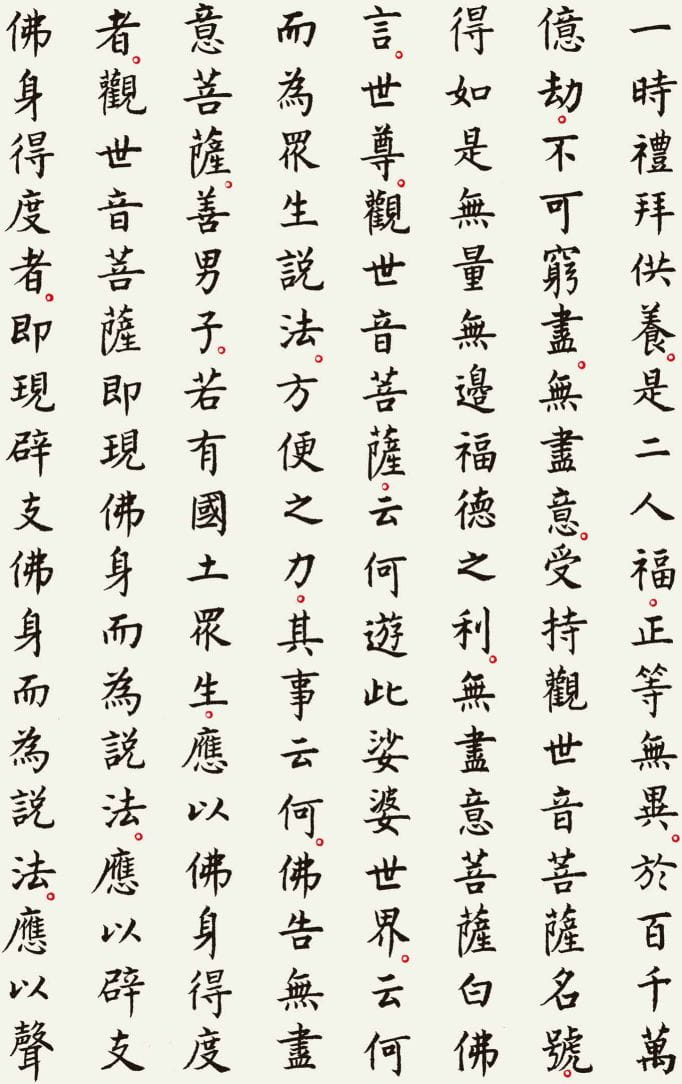 一時禮拜供養。是二人福。正等無異。於百千萬
億劫。不可窮盡。無盡意。受持觀世音菩薩名號。
得如是無量無邊福德之利。無盡意菩薩白佛
言。世尊。觀世音菩薩。云何遊此娑婆世界。云何
而為眾生說法。方便之力。其事云何。佛告無盡
意菩薩。善男子。若有國土眾生。應以佛身得度
者。觀世音菩薩即現佛身而為說法。應以辟支
佛身得度者。即現辟支佛身而為說法。應以聲